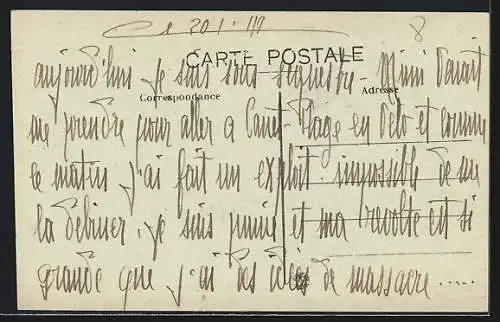 Ce 20 1. 19
8
CARTE POSTALE
aujourd'hui je suis sous séquestre - Mimi devait
Correspondance Adresse
me prendre pour aller à Canet-Plage en vélo et comme
ce matin j'ai fait un exploit impossible de me
la débiner. je suis punie et ma révolte est si
grande que j'ai des idées de massacre.....